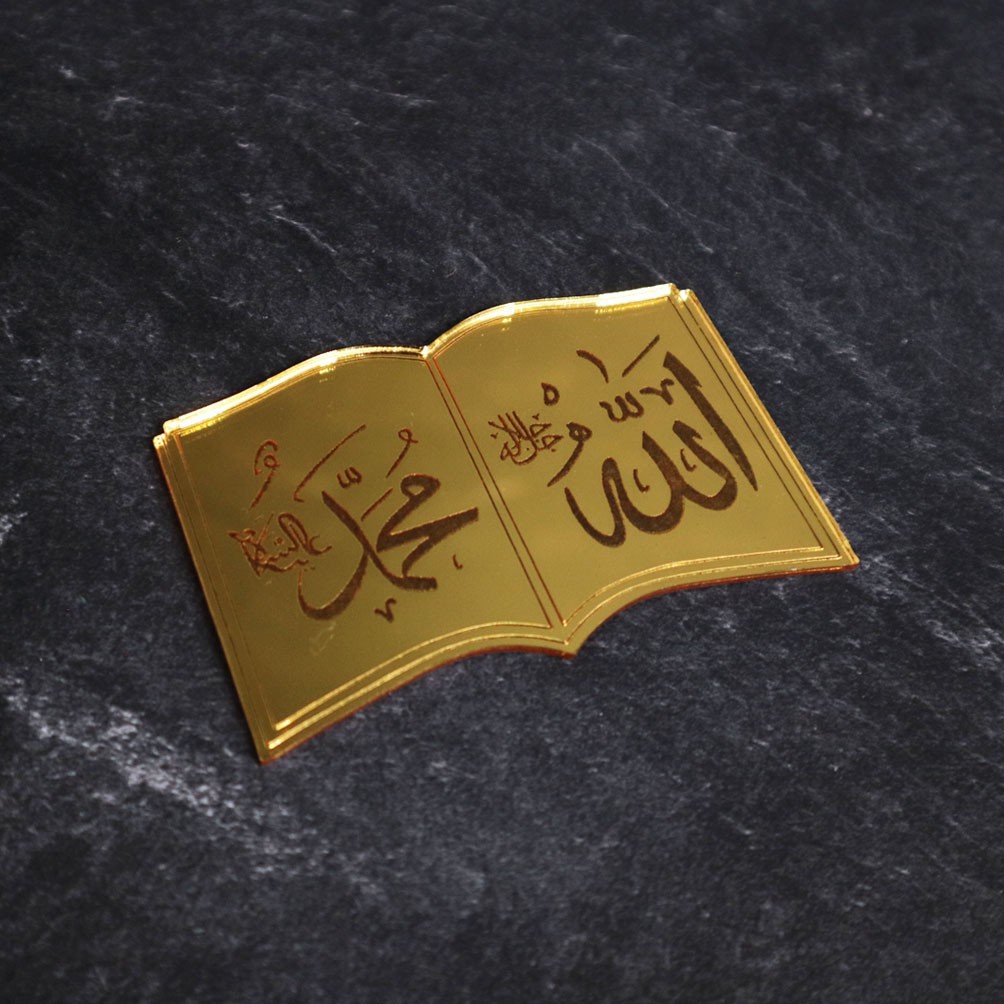 اللّٰهُ جل جلاله
مُحَمَّد عليه السلام